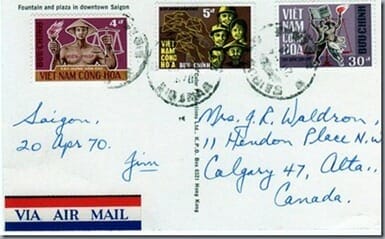 Fountain and plaza in downtown Saigon
4đ
VIỆT NAM CỘNG-HÒA
5đ
VIỆT NAM CỘNG HÒA
BƯU-CHÍNH
VIỆT NAM CỘNG HÒA
BƯU-CHÍNH
30đ
Saigon,
20 Apr 70.
Jim
Mrs. J. R. Waldron,
11 Hendon Place N.W.
Calgary 47, Alta.,
Canada.
VIA AIR MAIL